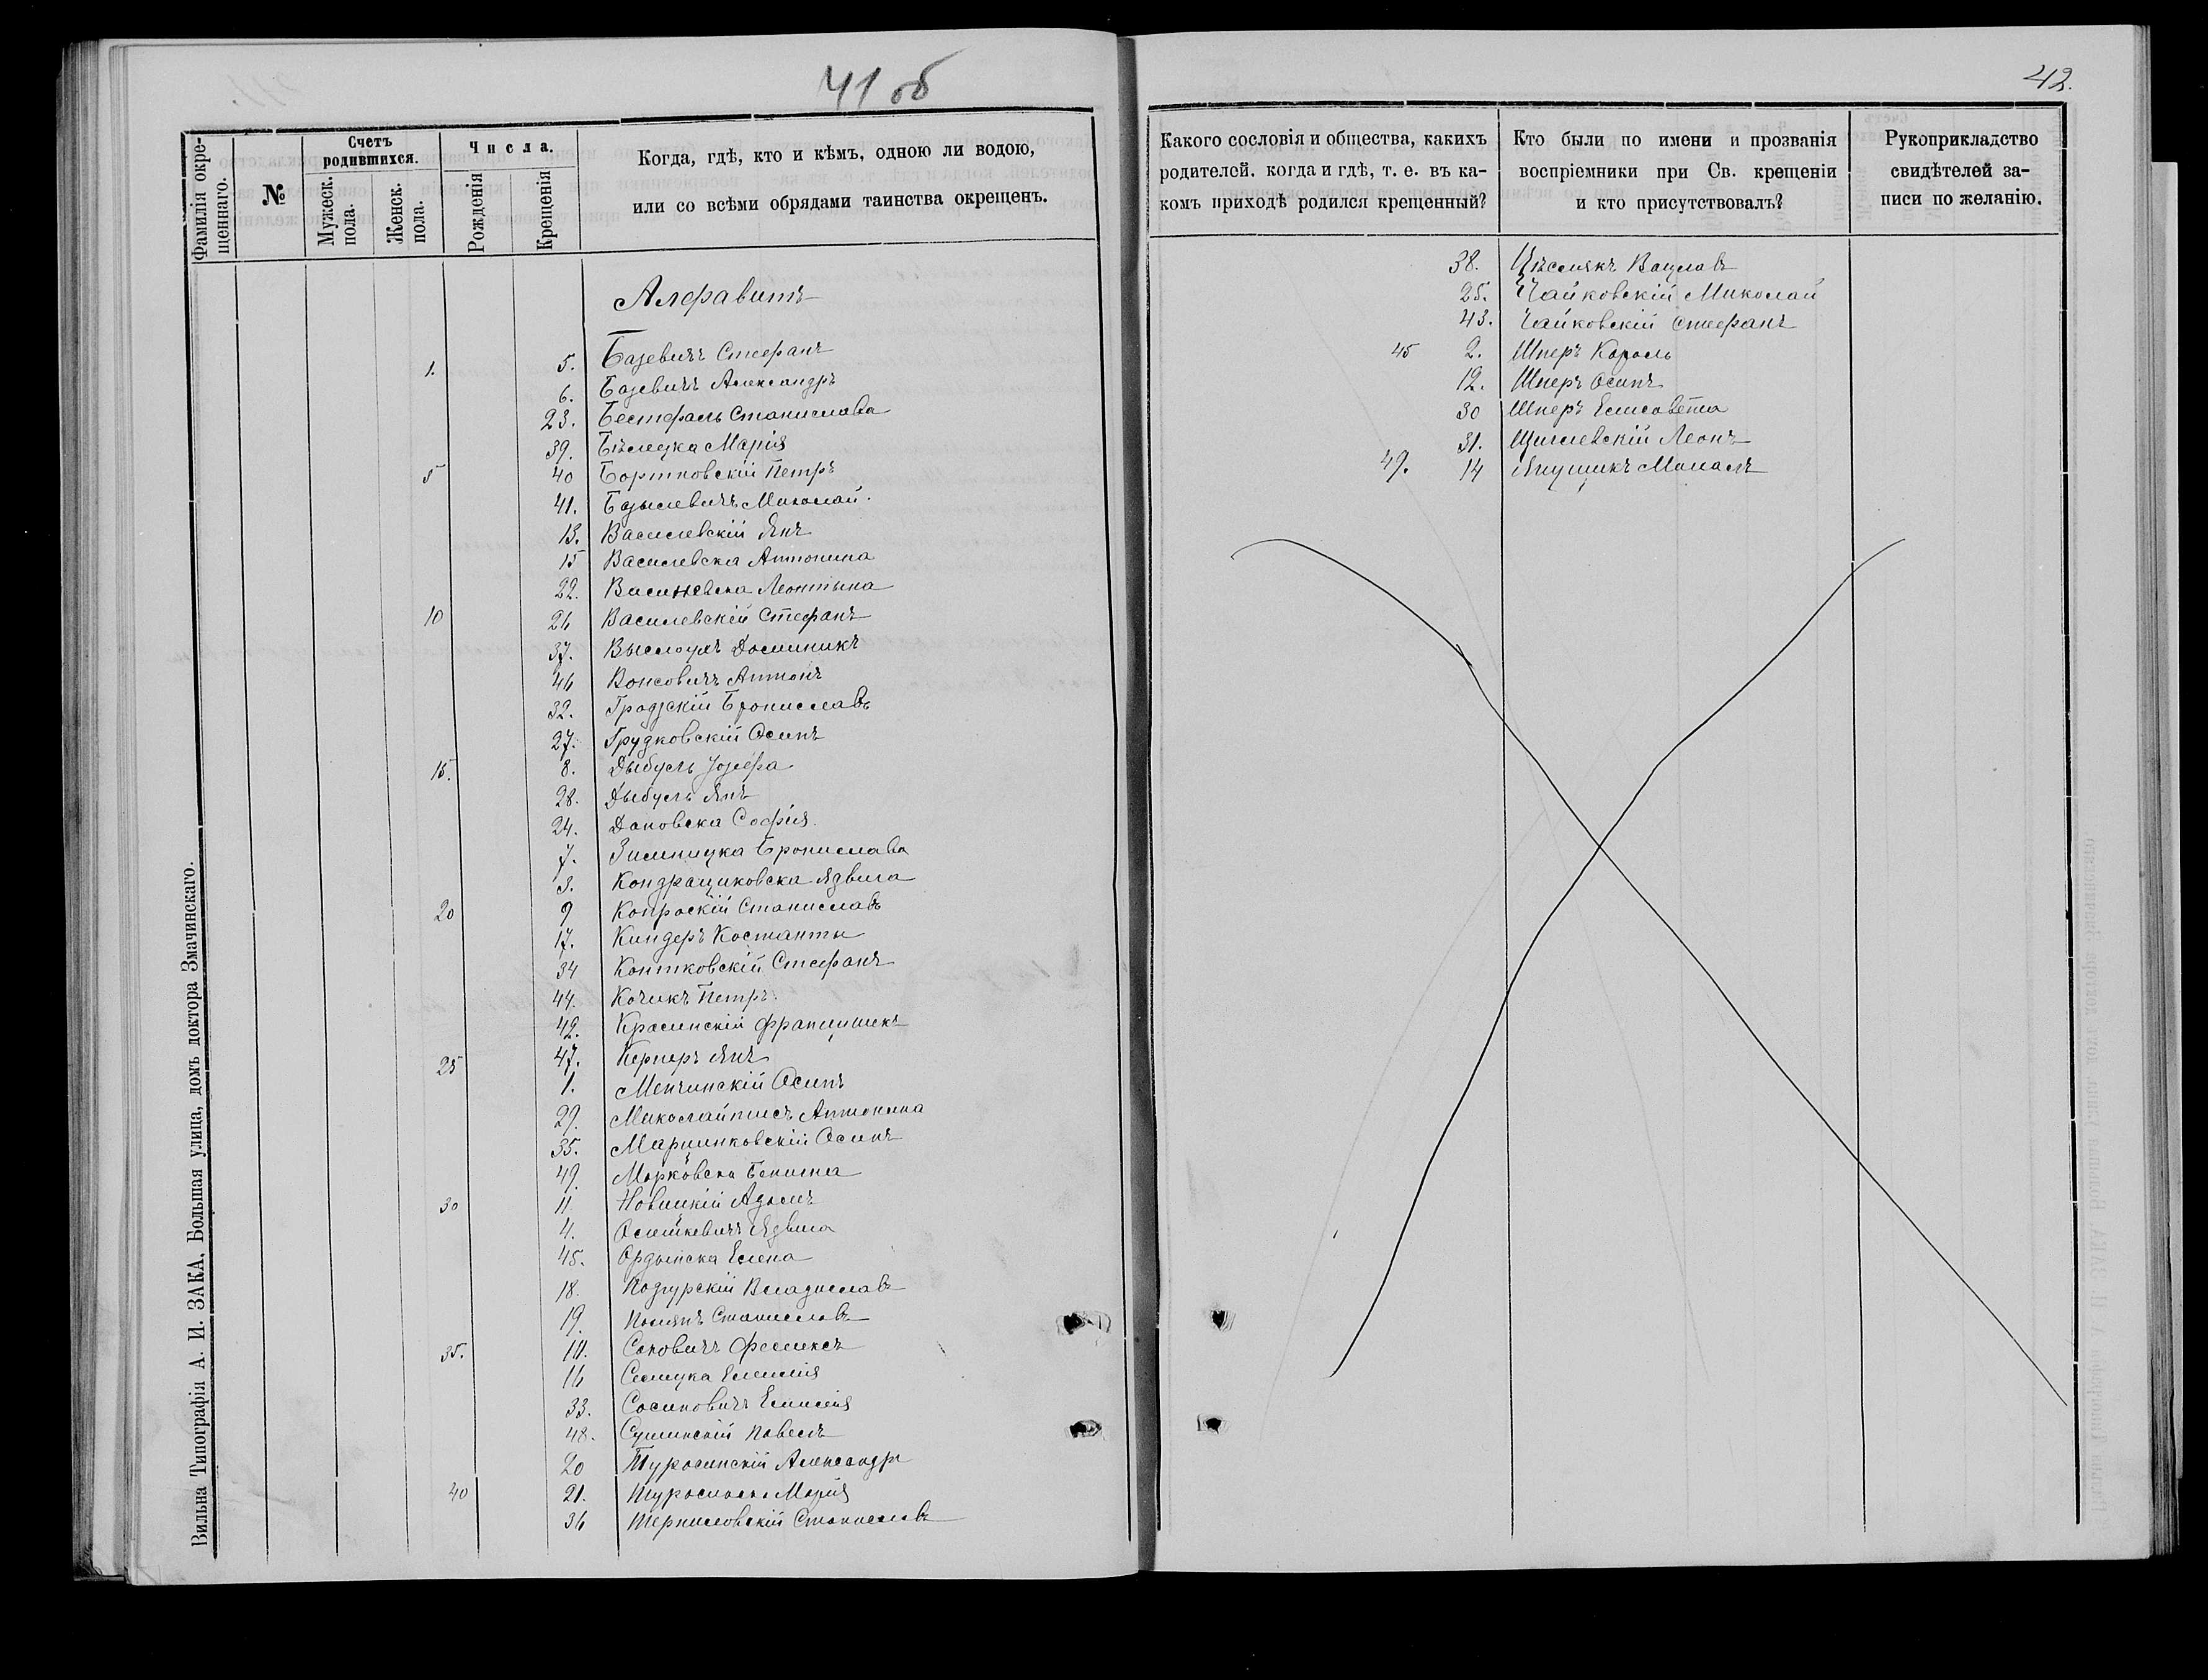 41 об
42.
Фамилія окре-
щеннаго.
№
Счетъ
родившихся.
Мужеск.
пола.
Женск.
пола.
Числа.
Рожденія
Крещенія
Когда, гдѣ, кто и кѣмъ, одною ли водою,
или со всѣми обрядами таинства окрещенъ.
Алфавитъ
1. 5. Базевичъ Стефанъ
6. Базевичъ Александръ
23. Бестфаль Станислава
39. Бѣлецка Марія
5 40 Бортновскій Петръ
41. Базылевичъ Миколай.
13. Василевскій Янъ
15 Василевска Антонина
22. Василевска Леонтына
10 26 Василевскій Стефанъ
37. Выслоухъ Доминикъ
46 Вонсовичъ Антонъ
32. Гродзскій Брониславъ
27. Грудковскій Осипъ
15. 8. Дыбусь Јозефа
28. Дыбусь Янъ
24. Дановска Софія
7. Зимницка Бронислава
3. Кондрациковска Ядвига
20 9 Копроскій Станиславъ
17. Киндеръ Костанты
34 Контковскій Стефанъ
44. Кочикъ Петръ.
42. Красинскій Францишекъ
25 47. Кернеръ Янъ
1. Менчинскій Осипъ
29. Миколайтисъ Антонина
35. Марцинковскій Осипъ
49. Марковска Бенигна
30 11 Новицкій Адамъ
4. Осипкевичъ Ядвига
45. Ордынска Елена
18. Подгурскій Владиславъ
19. Полянъ Станиславъ
35. 10. Саковичъ Феликсъ
16 Селицка Емилія
33. Сосиновичъ Емилія
48. Сушинскій Павелъ
20 Туросинскій Александръ
40 21. Туросинска Марія
36 Терпиловскій Станиславъ
Вильна Типографія А. И. ЗАКА, Большая улица, домъ доктора Змачинскаго.
Какого сословія и общества, какихъ
родителей. когда и гдѣ, т. е. въ ка-
комъ приходѣ родился крещенный?
Кто были по имени и прозванія
воспріемники при Св. крещеніи
и кто присутствовалъ?
Рукоприкладство
свидѣтелей за-
писи по желанію.
38. Цѣслякъ Вацлавъ
25. Чайковскій Миколай
43. Чайковскій Стефанъ
45 2. Шперъ Кароль
12. Шперъ Осипъ
30 Шперъ Елисавета
31. Щиглевскій Леонъ
49. 14 Янушикъ Михалъ